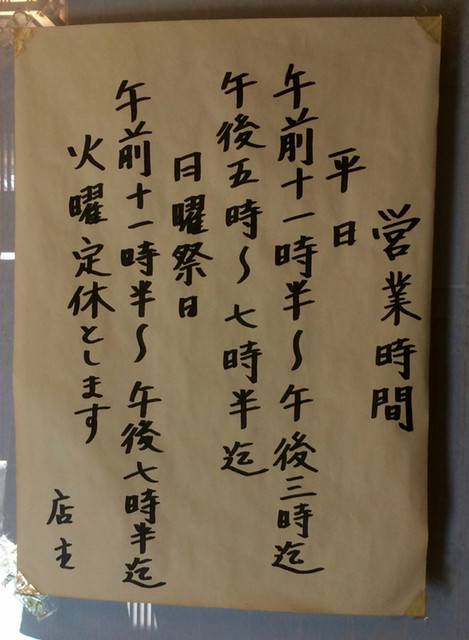 営業時間
平日
午前十一時半〜午後三時迄
午後五時〜七時半迄
日曜祭日
午前十一時半〜午後七時半迄
火曜定休とします
店主